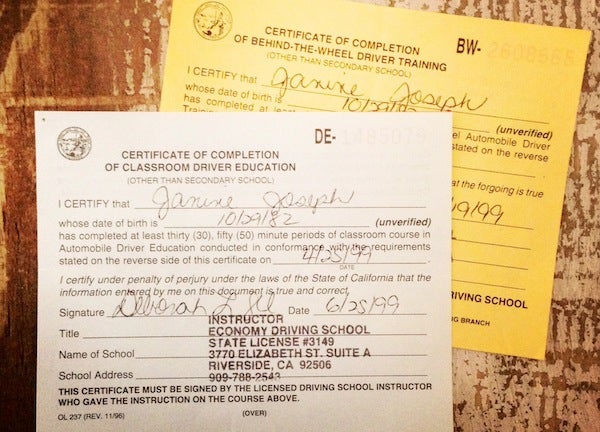 CERTIFICATE OF COMPLETION
OF BEHIND-THE-WHEEL DRIVER TRAINING
(OTHER THAN SECONDARY SCHOOL)
BW- 2608665
I CERTIFY that Janine Joseph
whose date of birth is 10/29/82
(unverified)
has completed at least
el Automobile Driver
Training
stated on the reverse
at the forgoing is true
9/99
RIVING SCHOOL
G BRANCH
DE- 1485079
CERTIFICATE OF COMPLETION
OF CLASSROOM DRIVER EDUCATION
(OTHER THAN SECONDARY SCHOOL)
I CERTIFY that Janine Joseph
whose date of birth is 10/29/82 (unverified)
has completed at least thirty (30), fifty (50) minute periods of classroom course in
Automobile Driver Education conducted in conformance with the requirements
stated on the reverse side of this certificate on 4/25/99
DATE
I certify under penalty of perjury under the laws of the State of California that the
information entered by me on this document is true and correct.
Signature Deborah L Date 6/25/99
Title INSTRUCTOR
ECONOMY DRIVING SCHOOL
STATE LICENSE #3149
Name of School 3770 ELIZABETH ST. SUITE A
RIVERSIDE, CA 92506
School Address 909-788-2543
THIS CERTIFICATE MUST BE SIGNED BY THE LICENSED DRIVING SCHOOL INSTRUCTOR
WHO GAVE THE INSTRUCTION ON THE COURSE ABOVE.
OL 237 (REV. 11/96) (OVER)